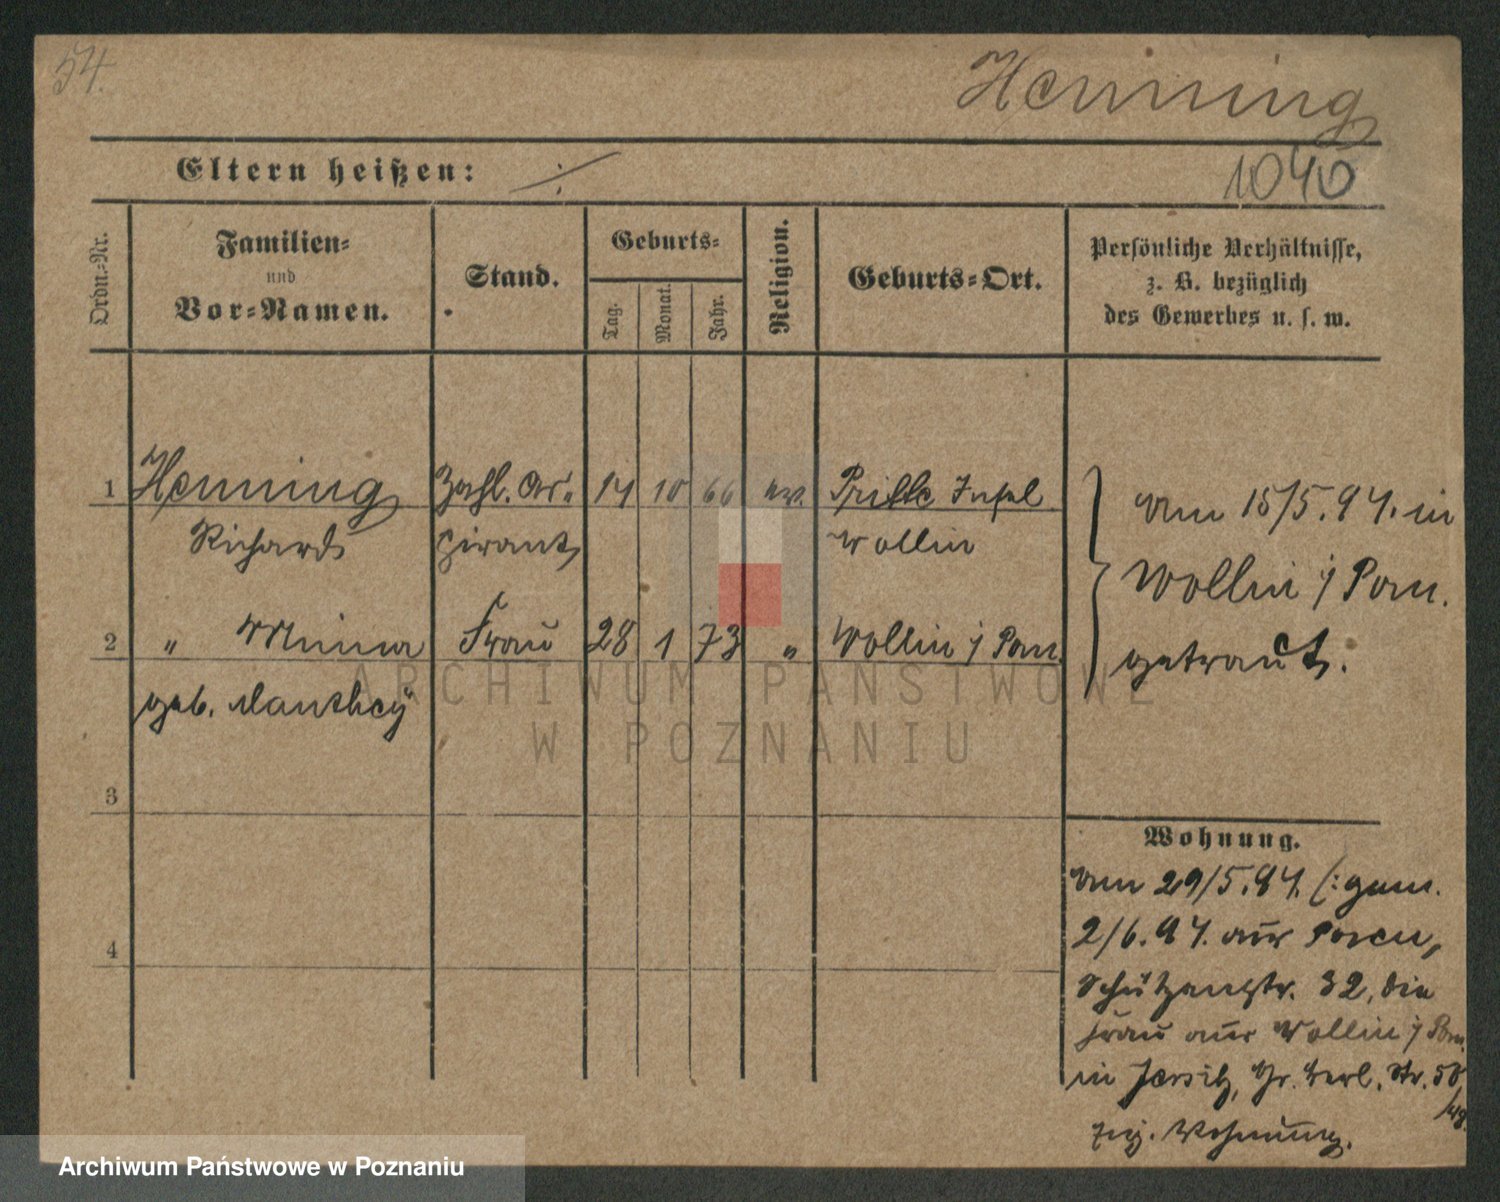 54.
Henning
Eltern heißen: ./.
1040
Ordn.-Nr.
Familien-
und
Vor-Namen.
Stand.
Geburts-
Tag.
Monat.
Jahr.
Religion.
Geburts-Ort.
Persönliche Verhältnisse,
z. B. bezüglich
des Gewerbes u. s. w.
1 Henning Zahl. As- 14 10 66 ev. Insel
Richard pirant Wollin
2 " Minna Frau 28 1 73 " Wollin i/ Pom.
geb. Manthey
3
4
am 15/5. 94. in
Wollin i/ Pom.
getraut.
Wohnung.
Am 29/5. 94. (: gem.
2/6. 94. aus Posen,
Schützenstr. 32, die
Frau aus Wollin i/ Pom.
in Jersitz, Gr. Berl. Str. 58
zug. Wohnung.
ARCHIWUM PAŃSTWOWE
W POZNANIU
Archiwum Państwowe w Poznaniu